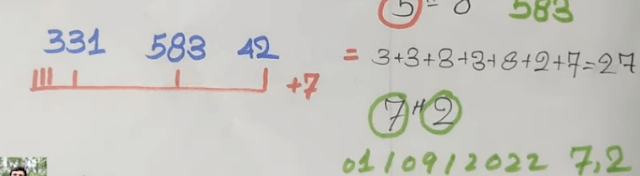 5 = 8 583
331 583 42 = 3+3+8+3+8+2+7=27
+7
7"2
01/09/2022 7,2